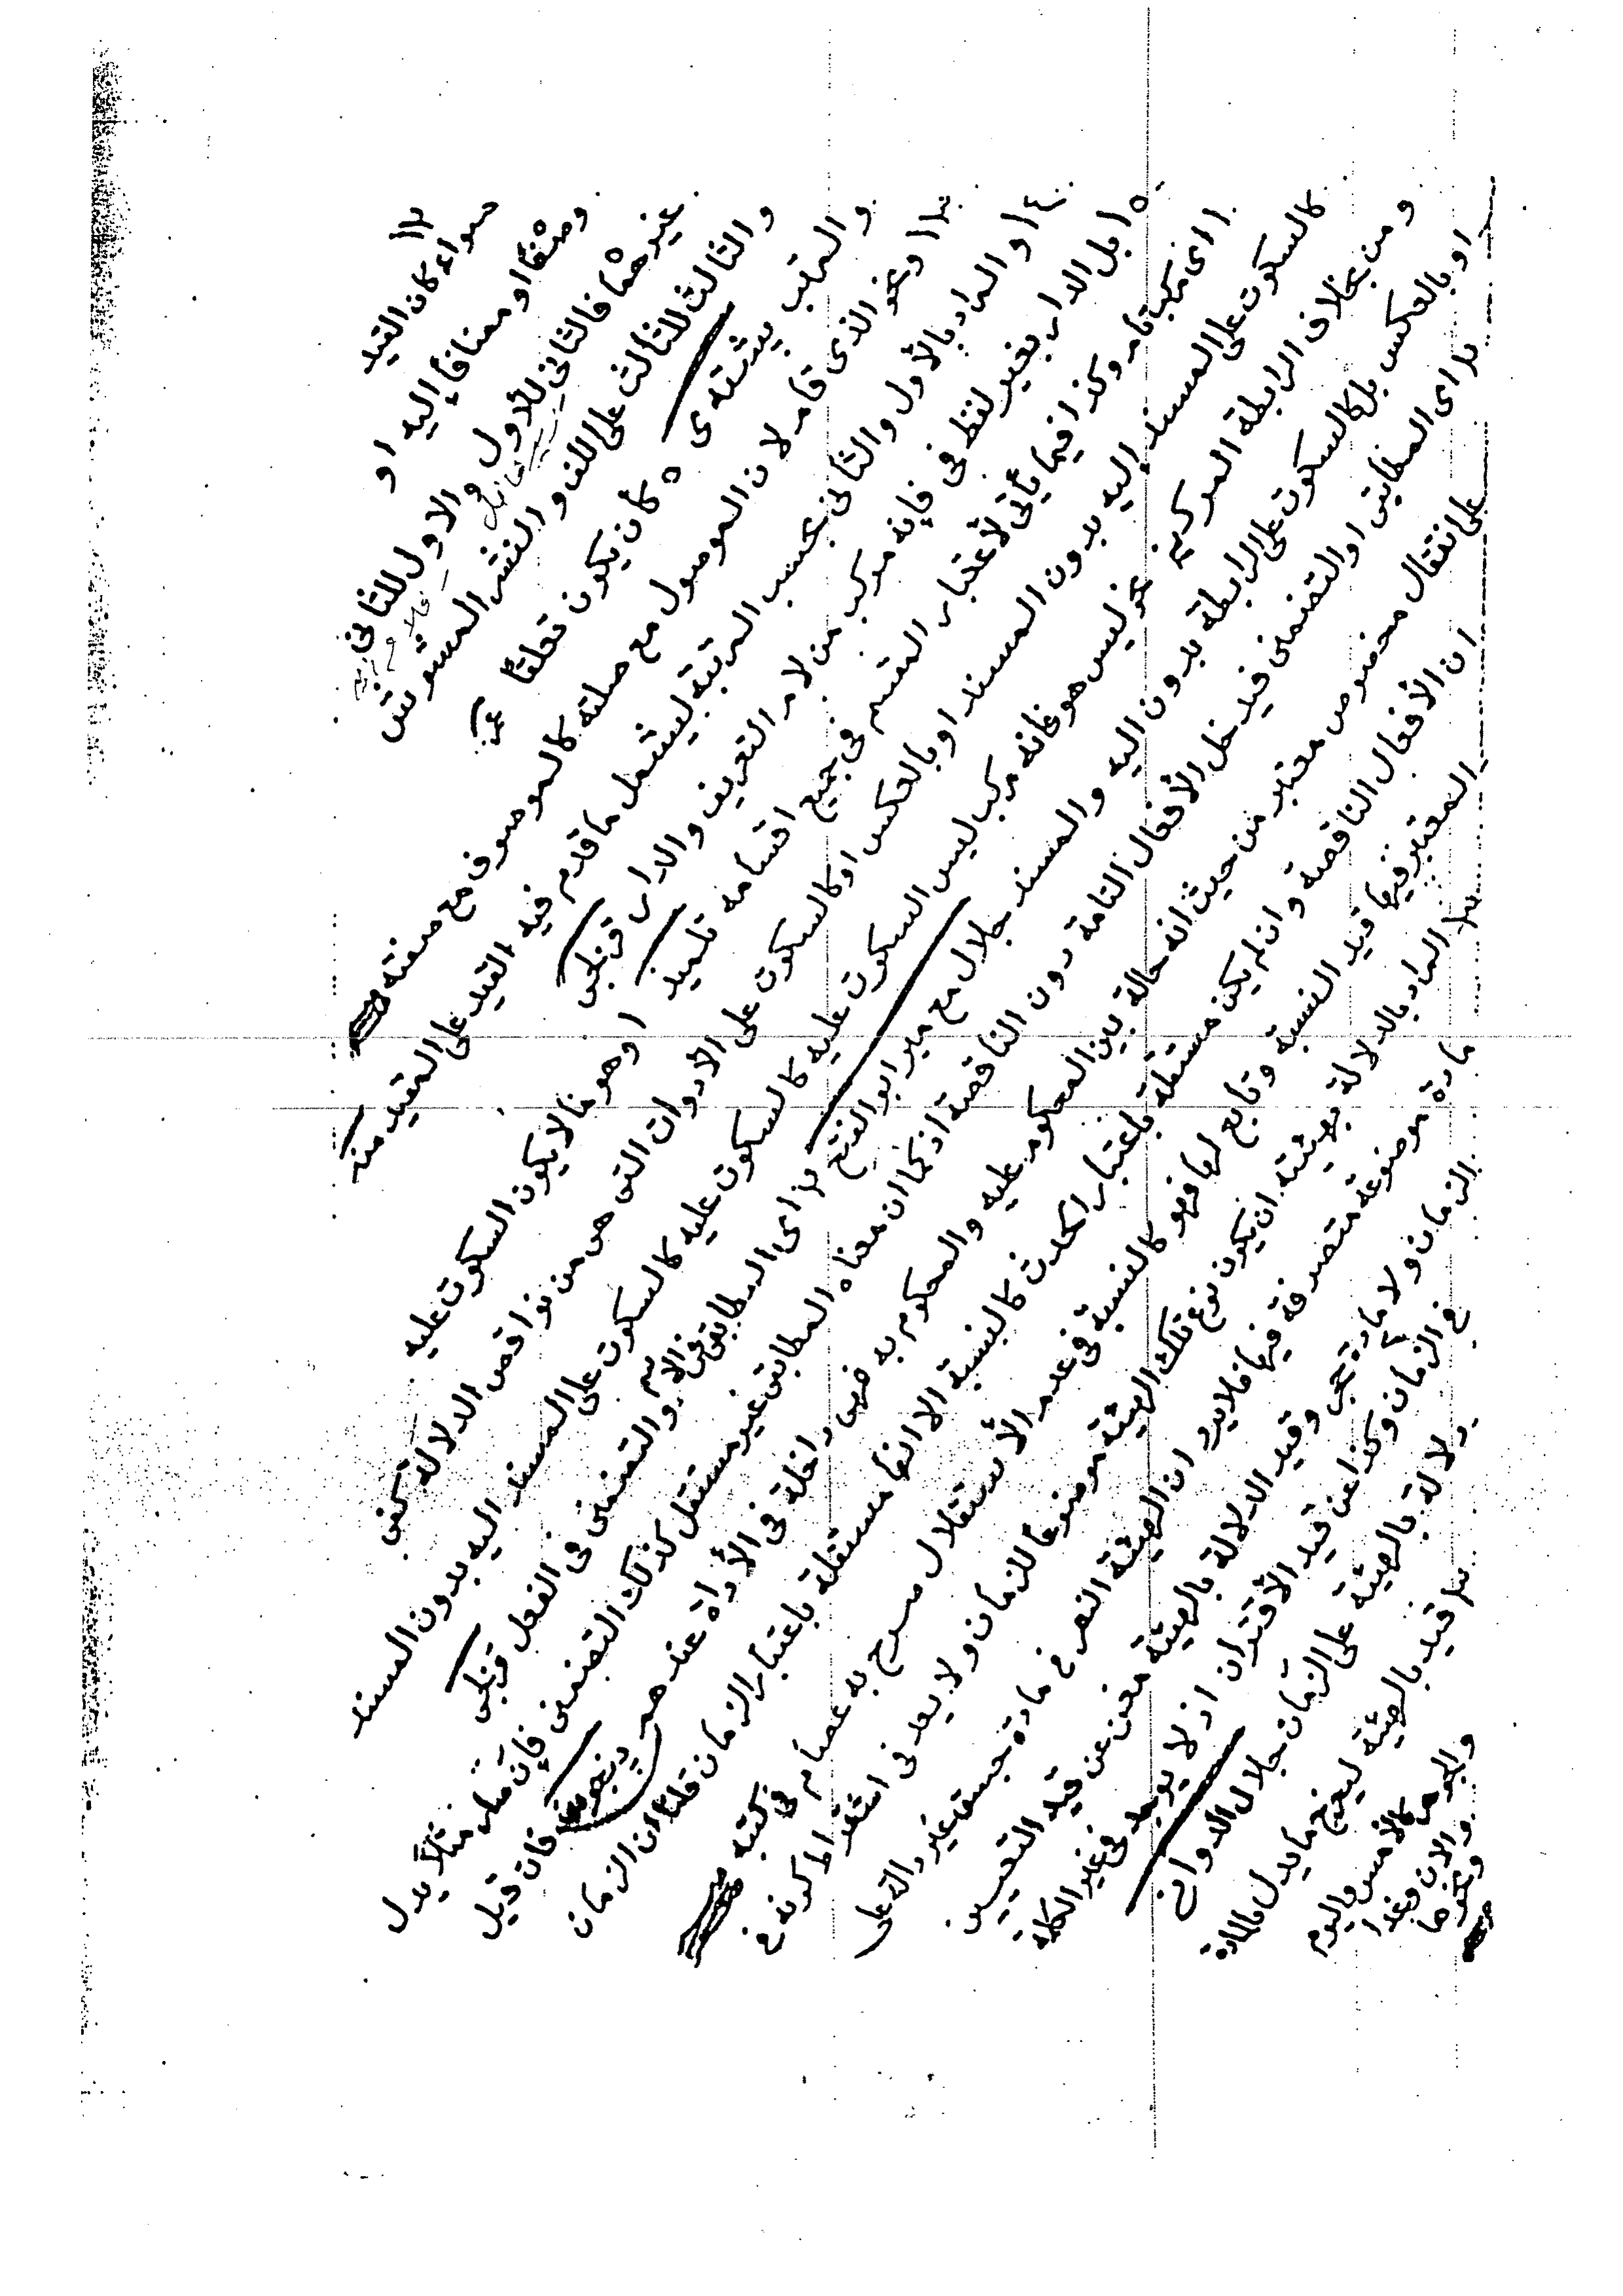 سواء كان القيد
وصفا او مضافا إليه او
غيرهما فالثانى للأول والاول للثانى
والثالث للثالث على اللف والنشر المشوش
والمركب يشتهى ٥ كأن يكون تعلقا
ونحو الذى قام لان الموصول مع صلته كالموصوف مع صفته
١٤ والمراد بالأول والثانى بحسب المرتبة ليشمل ما قدم فيه القيد على المقيد منه
١٥ بل الدار بغير لفظ فى فإنه مركب من لام التعريف والدار قزلجى
١ اى مركب تام وكذا فيما يأتى لأعتبار المقسم فى جميع اقسامه تلميذ ١ وهو ما لا يكون السكوت عليه
كالسكوت على المسند إليه بدون المسند او بالعكس او كالسكوت على الأدوات التى هى من نواقص الدلالة كفى
ومن بخلاف الرابطة المركبة نحو ليس هو فانه مركب ليس السكوت عليه كالسكوت عليه كالسكوت على المسند اليه بدون المسند
او بالعكس بل كالسكوت على الرابطة بدون اليه والمسند جلال مع مير ابو الفتح ٢ اى المطابقى فى الاسم والتضمنى فى الفعل قزلجى
٣ اى المطابقى او التضمنى فيدخل الأفعال التامة دون الناقصة اذ كما ان معناه المطابقى غير مستقل كذلك التضمنى فإن صار مثلاً يدل
على انتقال مخصوص معتبر من حيث انه حالة بين المحكوم عليه والمحكوم به فهى داخلة فى الأداة عندهم پنجوينى فان قيل
ان الأفعال الناقصة وان لم يكن مستقلة باعتبار الحدث كالنسبة الا انها مستقلة باعتبار الزمان قلنا ان الزمان
المعتبر فيها قيد النسبة وتابع لها فهو كالنسبة فى عدم الأستقلال صرح به عصام فى كتبه
المراد بالدلالة بهيئته ان يكون نوع تلك الهيئة موضوعا للزمان ولا يعد فى اشتراط كونه فى
مادة موضوعة متصرفة فيها فلا يرد ان الهيئة النصر فى مادة جسق غير دالة على
الزمان ولا مادة حجر وقيد الدلالة بالهيئة مغن عن قيد التعيين
فى الزمان وكذا عن قيد الأقتران اذ لا يوجد فى غير الكلمة
دلالة بالهيئة على الزمان جلال الدوانى
قيد بالهيئة ليخرج ما يدل بالمادة
والجوهر كالأمس واليوم
والآن وغدا
ونحوها